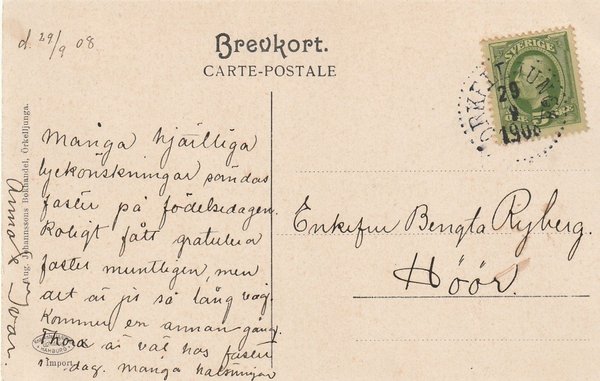 d 29/9 08
Brevkort.
CARTE-POSTALE
SVERIGE
ÖRKELLJUNGA
29
9
1908
Många hjärtliga
lyckönskningar sändas
faster på födelsedagen.
Roligt fått gratulera
faster muntligen, men
det är ju så lång väg.
Kommer en annan gång.
Thora är väl hos faster
i dag. många hälsningar
Anna &
Enkefru Bengta Ryberg.
Höör.
Aug. Johanssons Bokhandel, Örkelljunga.
HAMBURG
Import.